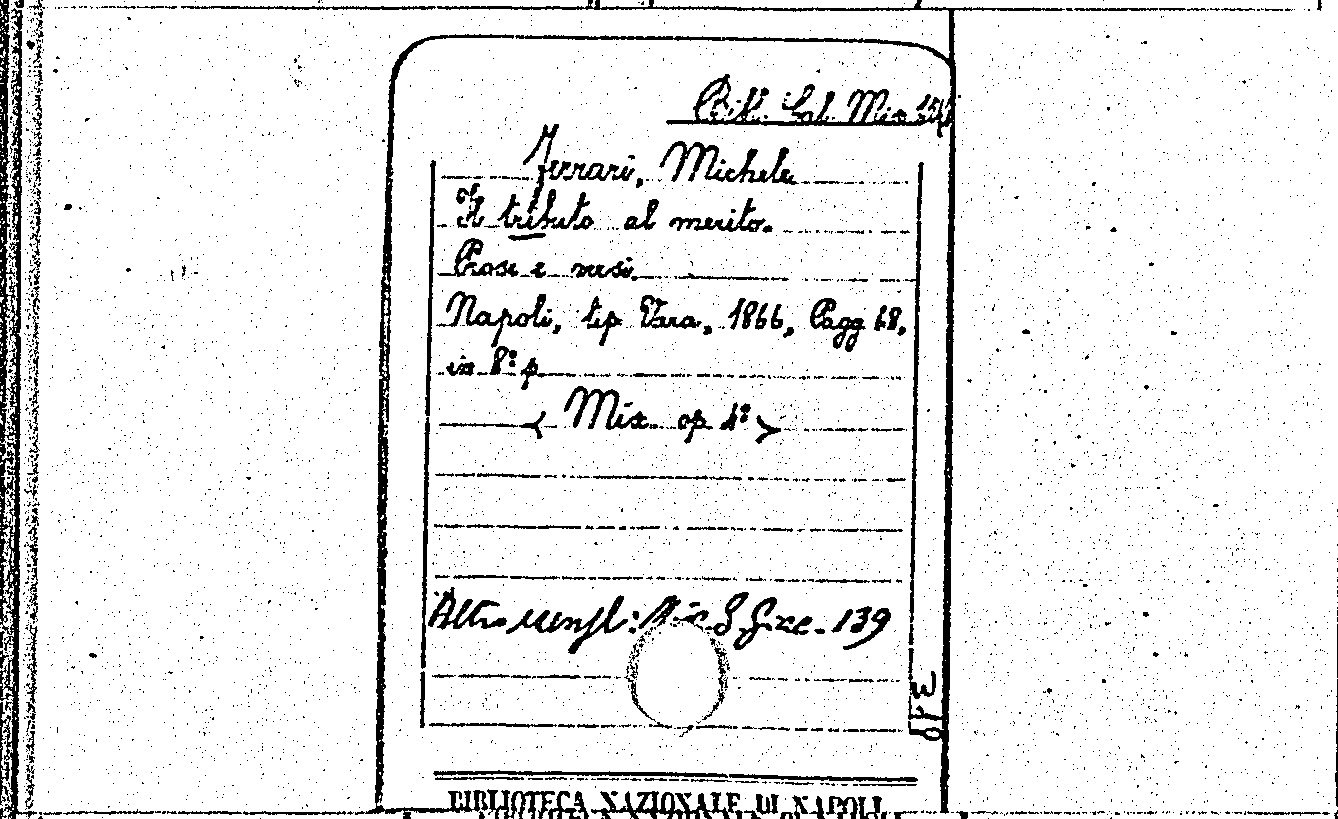 Ferrari, Michele
Il tributo al merito.
Prose e versi
Napoli, tip Vara, 1866, Pagg 68.
in 8º p
( Mis. op 4º )
Altro esempl: Misc S Giac. 139
348
BIBLIOTECA NAZIONALE DI NAPOLI